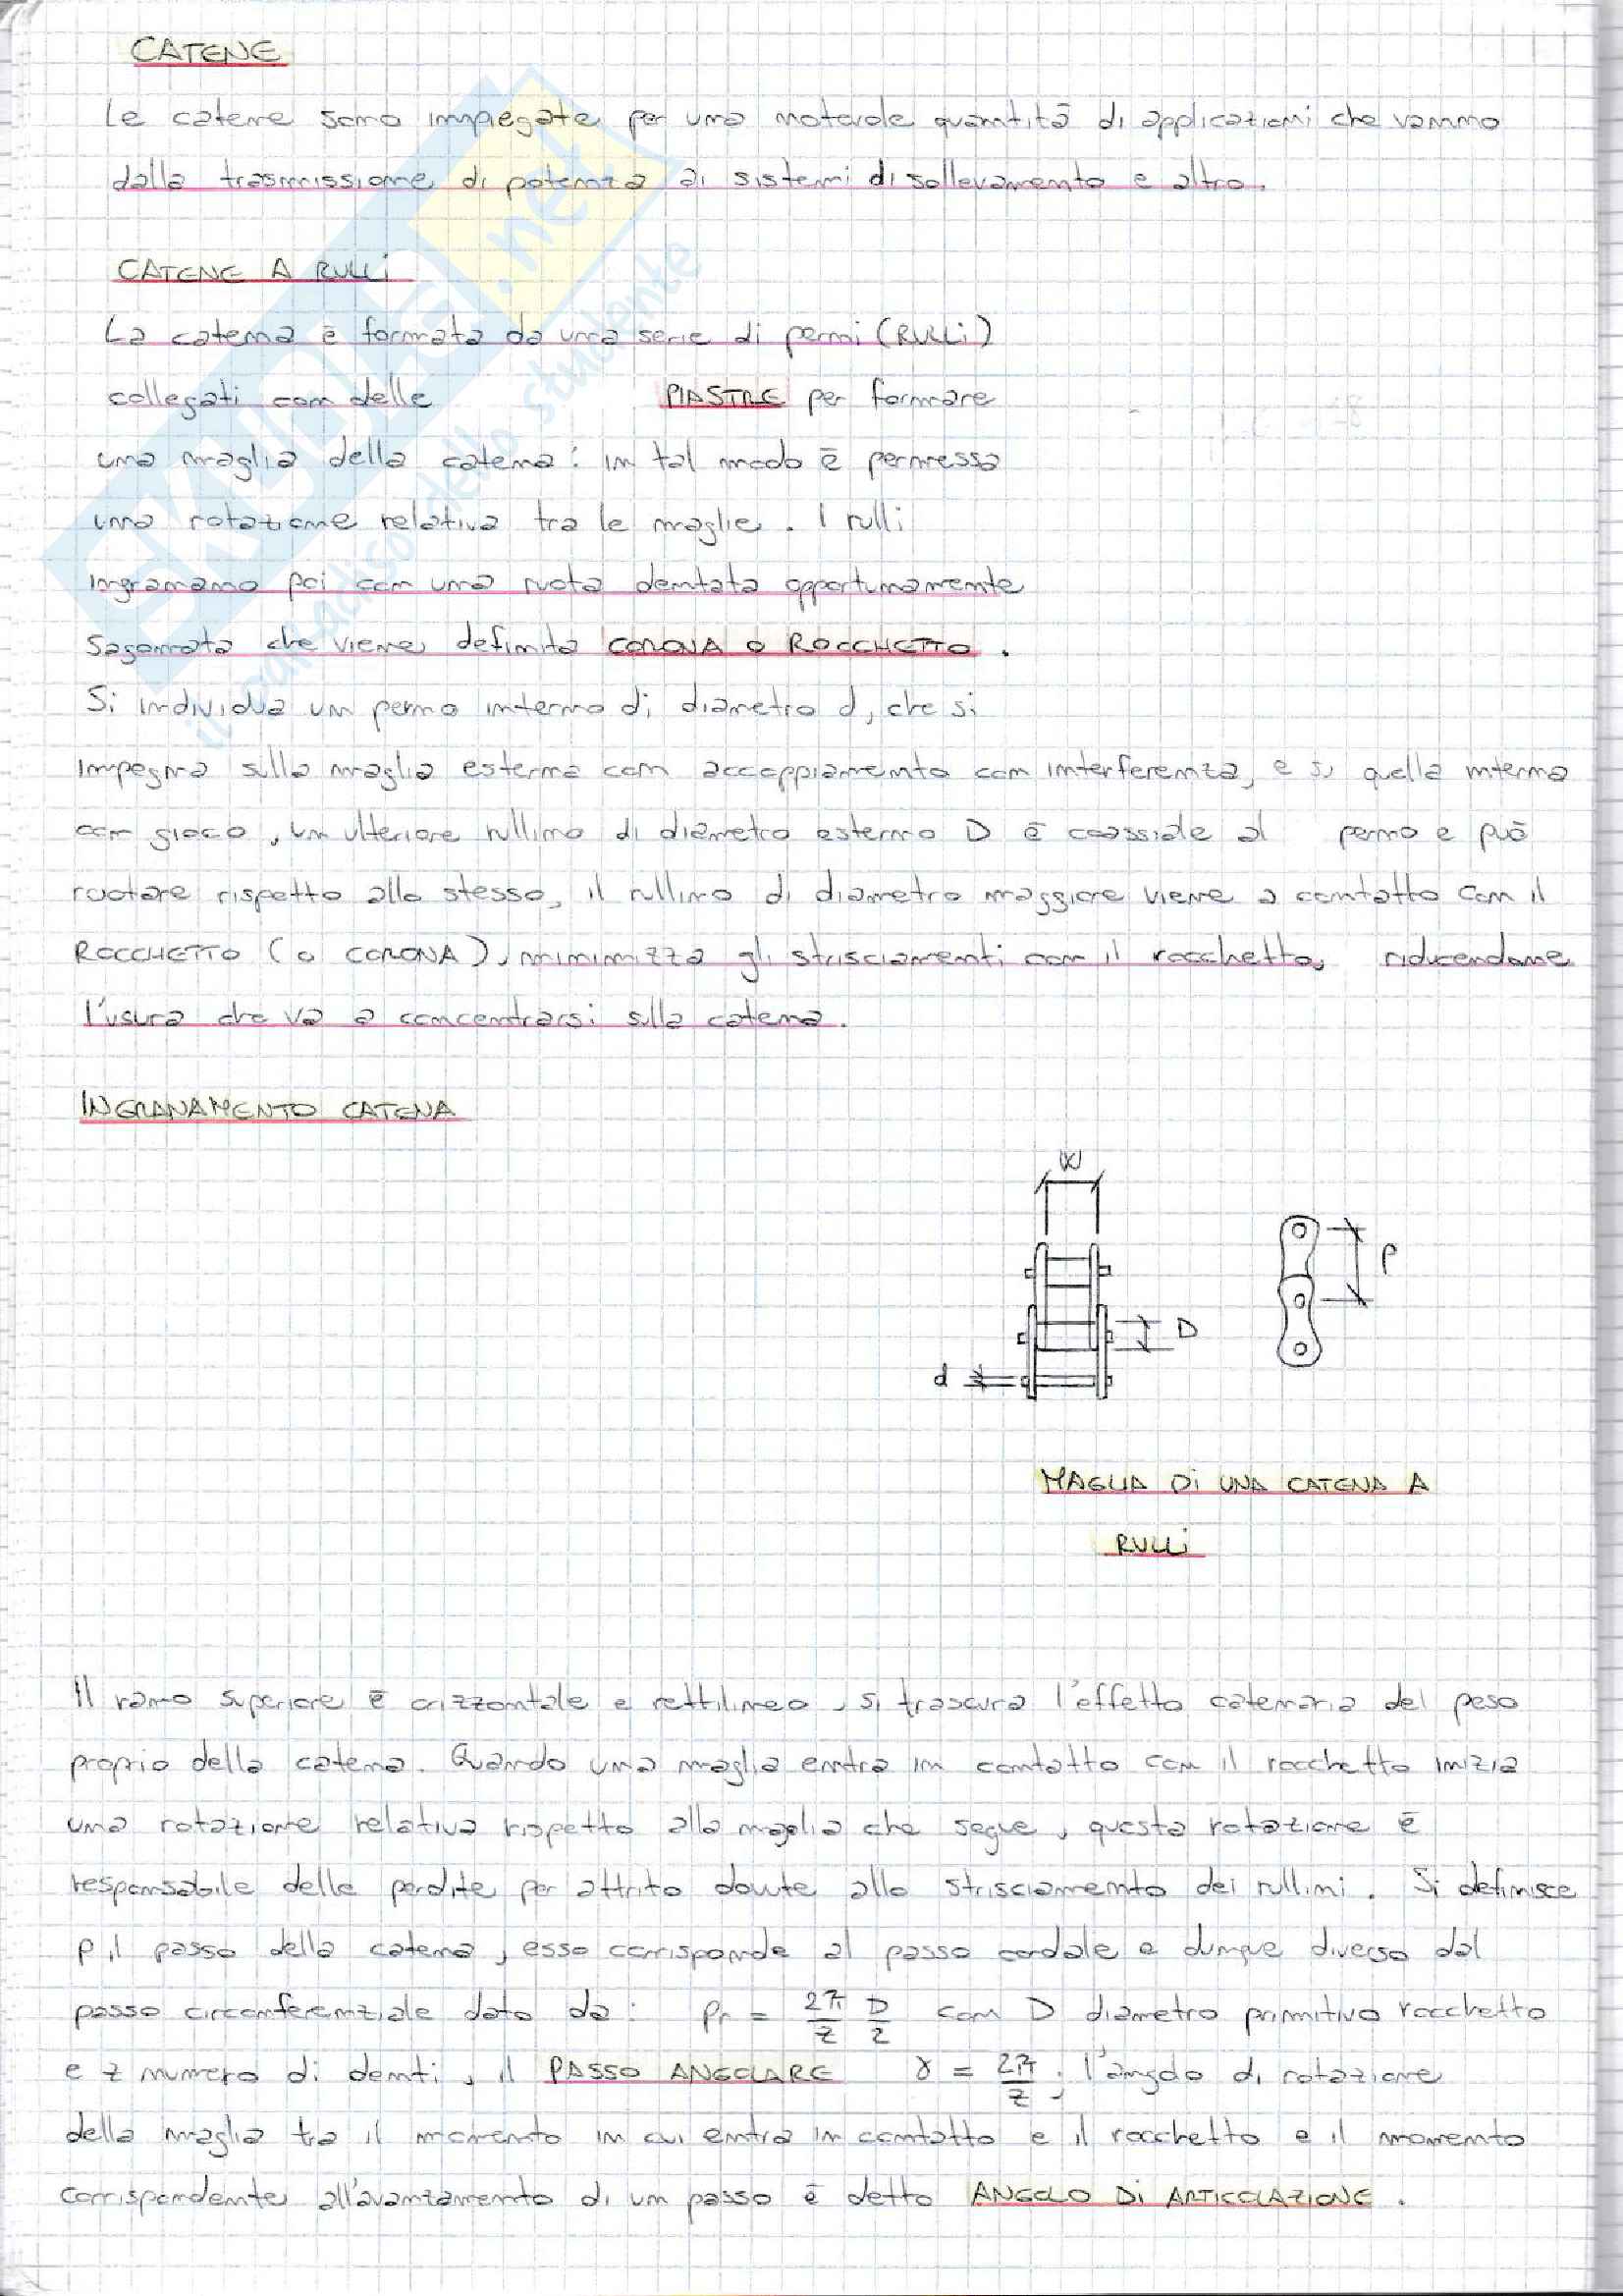 CATENE
Le catene sono impiegate per una notevole quantità di applicazioni che vanno
dalla trasmissione di potenza ai sistemi di sollevamento e altro.
CATENE A RULLI
La catena è formata da una serie di perni (RULLI)
collegati con delle PIASTRE per formare
una maglia della catena: in tal modo è permessa
una rotazione relativa tra le maglie. I rulli
ingranano poi con una ruota dentata opportunamente
sagomata che viene definita CORONA O ROCCHETTO.
Si individua un perno interno di diametro d, che si
impegna sulla maglia esterna con accoppiamento con interferenza, e su quella interna
con gioco, un ulteriore rullino di diametro esterno D è coassiale al perno e può
ruotare rispetto allo stesso, il rullino di diametro maggiore viene a contatto con il
ROCCHETTO (o CORONA), minimizza gli strisciamenti con il rocchetto, riducendone
l'usura che va a concentrarsi sulla catena.
INGRANAMENTO CATENA
W
p
D
d
MAGLIA DI UNA CATENA A
RULLI
Il ramo superiore è orizzontale e rettilineo, si trascura l'effetto catenaria del peso
proprio della catena. Quando una maglia entra in contatto con il rocchetto inizia
una rotazione relativa rispetto alla maglia che segue, questa rotazione è
responsabile delle perdite per attrito dovute allo strisciamento dei rullini. Si definisce
p il passo della catena, esso corrisponde al passo cordale e dunque diverso dal
passo circonferenziale dato da: pr = 2π/z D/2 con D diametro primitivo rocchetto
e z numero di denti, il PASSO ANGOLARE γ = 2π/z; l'angolo di rotazione
della maglia tra il momento in cui entra in contatto e il rocchetto e il momento
corrispondente all'avanzamento di un passo è detto ANGOLO DI ARTICOLAZIONE.
SKUOLA.net
il paradiso dello studente